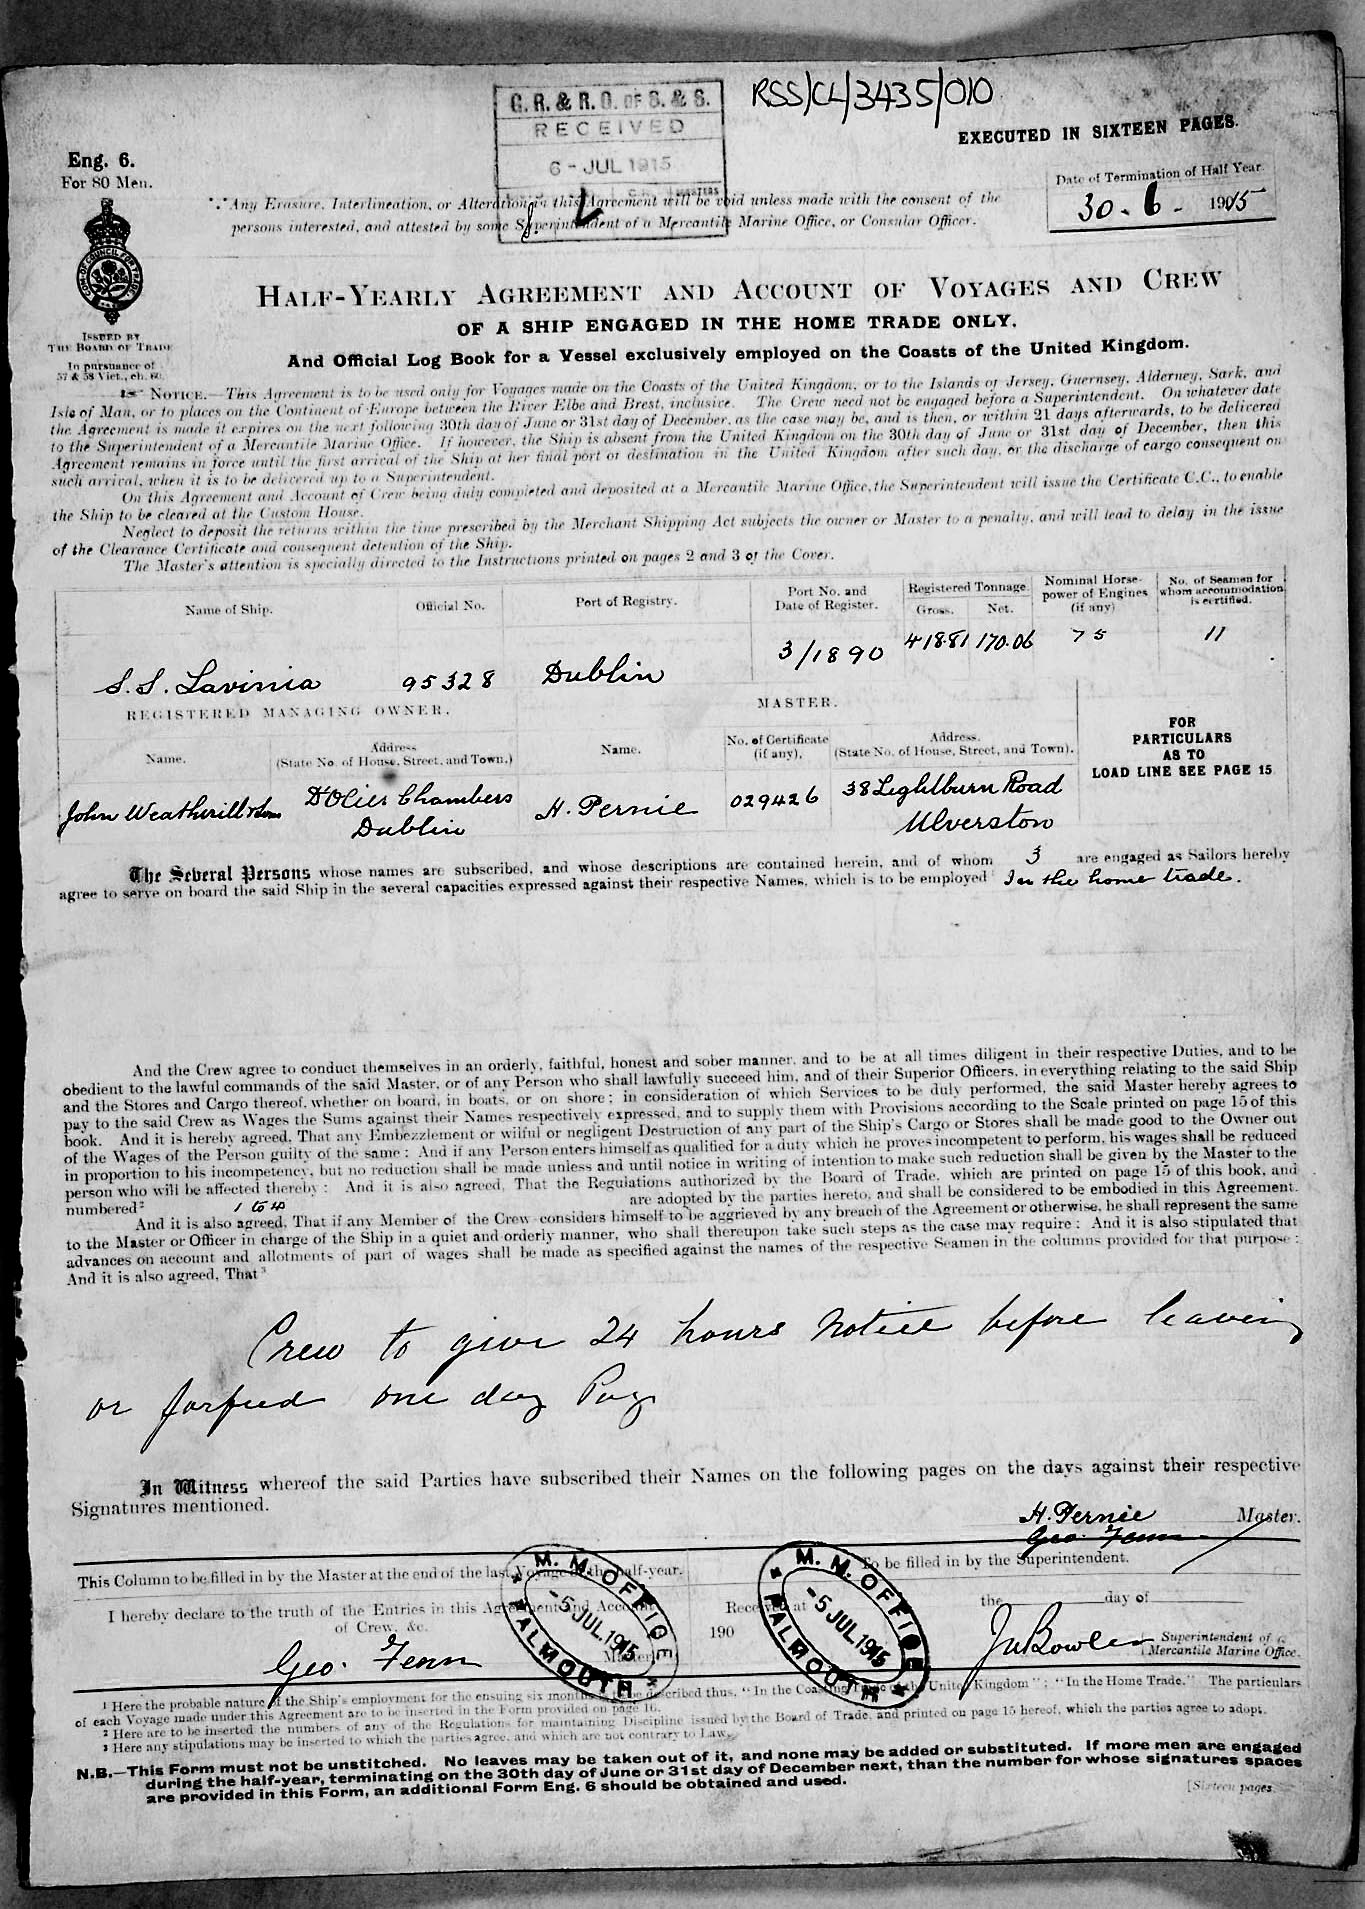 RSS/CL/3435/010
G. R. & R. O. OF S. & S.
RECEIVED
6 - JUL 1915
EXECUTED IN SIXTEEN PAGES.
Eng. 6.
For 80 Men.
Date of Termination of Half Year.
30 - 6 - 1915
*** Any Erasure, Interlineation, or Alteration in this Agreement will be void unless made with the consent of the
persons interested, and attested by some Superintendent of a Mercantile Marine Office, or Consular Officer.
HALF-YEARLY AGREEMENT AND ACCOUNT OF VOYAGES AND CREW
OF A SHIP ENGAGED IN THE HOME TRADE ONLY.
And Official Log Book for a Vessel exclusively employed on the Coasts of the United Kingdom.
ISSUED BY
THE BOARD OF TRADE
In pursuance of
57 & 58 Vict., ch. 60.
NOTICE.—This Agreement is to be used only for Voyages made on the Coasts of the United Kingdom, or to the Islands of Jersey, Guernsey, Alderney, Sark, and
Isle of Man, or to places on the Continent of Europe between the River Elbe and Brest, inclusive. The Crew need not be engaged before a Superintendent. On whatever date
the Agreement is made it expires on the next following 30th day of June or 31st day of December, as the case may be, and is then, or within 21 days afterwards, to be delivered
to the Superintendent of a Mercantile Marine Office. If however, the Ship is absent from the United Kingdom on the 30th day of June or 31st day of December, then this
Agreement remains in force until the first arrival of the Ship at her final port of destination in the United Kingdom after such day, or the discharge of cargo consequent on
such arrival, when it is to be delivered up to a Superintendent.
On this Agreement and Account of Crew being duly completed and deposited at a Mercantile Marine Office, the Superintendent will issue the Certificate C.C., to enable
the Ship to be cleared at the Custom House.
Neglect to deposit the returns within the time prescribed by the Merchant Shipping Act subjects the owner or Master to a penalty, and will lead to delay in the issue
of the Clearance Certificate and consequent detention of the Ship.
The Master's attention is specially directed to the Instructions printed on pages 2 and 3 of the Cover.
Name of Ship. Official No. Port of Registry. Port No. and Date of Register. Registered Tonnage. Gross. Net. Nominal Horse-power of Engines (if any) No. of Seamen for whom accommodation is certified.
S.S. Lavinia 95328 Dublin 3/1890 418.81 170.06 75 11
REGISTERED MANAGING OWNER. MASTER.
FOR
PARTICULARS
AS TO
LOAD LINE SEE PAGE 15
Name. Address (State No. of House, Street, and Town.) Name. No. of Certificate (if any). Address. (State No. of House, Street, and Town).
John Weatherill & Sons D'Olier Chambers H. Pernie 029426 38 Lightburn Road
Dublin Ulverston
The Several Persons whose names are subscribed, and whose descriptions are contained herein, and of whom 3 are engaged as Sailors hereby
agree to serve on board the said Ship in the several capacities expressed against their respective Names, which is to be employed¹ In the home trade.
And the Crew agree to conduct themselves in an orderly, faithful, honest and sober manner, and to be at all times diligent in their respective Duties, and to be
obedient to the lawful commands of the said Master, or of any Person who shall lawfully succeed him, and of their Superior Officers, in everything relating to the said Ship
and the Stores and Cargo thereof, whether on board, in boats, or on shore; in consideration of which Services to be duly performed, the said Master hereby agrees to
pay to the said Crew as Wages the Sums against their Names respectively expressed, and to supply them with Provisions according to the Scale printed on page 15 of this
book. And it is hereby agreed, That any Embezzlement or wilful or negligent Destruction of any part of the Ship's Cargo or Stores shall be made good to the Owner out
of the Wages of the Person guilty of the same: And if any Person enters himself as qualified for a duty which he proves incompetent to perform, his wages shall be reduced
in proportion to his incompetency, but no reduction shall be made unless and until notice in writing of intention to make such reduction shall be given by the Master to the
person who will be affected thereby: And it is also agreed, That the Regulations authorized by the Board of Trade, which are printed on page 15 of this book, and
numbered² 1 to 4 are adopted by the parties hereto, and shall be considered to be embodied in this Agreement.
And it is also agreed, That if any Member of the Crew considers himself to be aggrieved by any breach of the Agreement or otherwise, he shall represent the same
to the Master or Officer in charge of the Ship in a quiet and orderly manner, who shall thereupon take such steps as the case may require: And it is also stipulated that
advances on account and allotments of part of wages shall be made as specified against the names of the respective Seamen in the columns provided for that purpose:
And it is also agreed, That³
Crew to give 24 hours Notice before leaving
or forfeed one day Pay
In Witness whereof the said Parties have subscribed their Names on the following pages on the days against their respective
Signatures mentioned.
H. Pernie Master.
Geo. Fenn
This Column to be filled in by the Master at the end of the last Voyage of the half-year.
To be filled in by the Superintendent.
I hereby declare to the truth of the Entries in this Agreement and Account
of Crew, &c.
Geo. Fenn Master
M. M. OFFICE
-5 JUL. 1915
FALMOUTH
Received at the day of
190
M. M. OFFICE
-5 JUL 1915
FALMOUTH
JnBowler Superintendent of a
Mercantile Marine Office.
¹ Here the probable nature of the Ship's employment for the ensuing six months is to be described thus, "In the Coasting Trade of the United Kingdom"; "In the Home Trade." The particulars
of each Voyage made under this Agreement are to be inserted in the Form provided on page 16.
² Here are to be inserted the numbers of any of the Regulations for maintaining Discipline issued by the Board of Trade, and printed on page 15 hereof, which the parties agree to adopt.
³ Here any stipulations may be inserted to which the parties agree, and which are not contrary to Law.
N.B.—This Form must not be unstitched. No leaves may be taken out of it, and none may be added or substituted. If more men are engaged
during the half-year, terminating on the 30th day of June or 31st day of December next, than the number for whose signatures spaces
are provided in this Form, an additional Form Eng. 6 should be obtained and used.
[Sixteen pages.